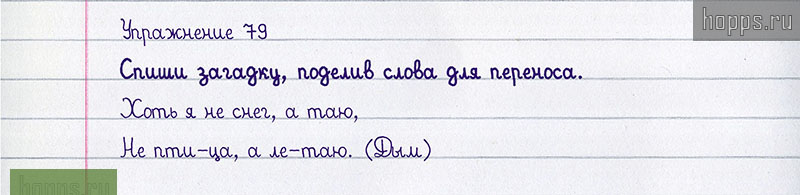 Упражнение 79
hopps.ru
Спиши загадку, поделив слова для переноса.
Хоть я не снег, а таю,
Не пти-ца, а ле-таю. (Дым)
hopps.ru